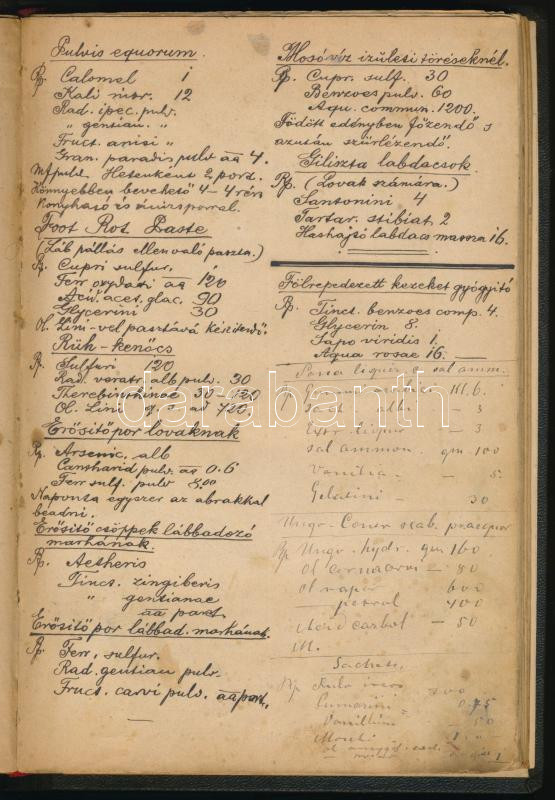 Pulvis equorum.
Rp. Calomel 1
Kali nitr. 12
Rad. ipec. pulv.
" gentian. "
Fruct. anisi "
Gran. paradis. pulv āā 4.
Mf pulv. Hetenkent 2 port.
Könnyebben bevehető 4–4 rész
Konyhasó és
Foot Rot Paste
(Láb pállás ellen való paszta.)
Rp. Cupri sulfur.
Ferr oxydati āā 120
Acid. acet. glac. 90
Glycerini 30
Ol. Lini-vel pasztává készítendő.
Rüh-kenőcs
Rp. Sulfuri 120
Rad. veratr. alb pulv. 30
Therebinthinae
Ol. Lini q. s. ad 420.
Erősítő por lovaknak
Rp. Arsenic. alb
Cantharid pulv. āā 0.6
Ferr sulf. pulv 8,00
Naponta egyszer az abrakkal
beadni.
Erősítő csöppek lábbadozó
marhának.
Rp. Aetheris
Tinct. zingiberis
" gentianae
āā part
Erősítő por lábbad. marhának.
Rp. Ferr. sulfur.
Rad. gentian pulv.
Fruct. carvi pulv. āā part.
Mosóvíz izületi töréseknél.
Rp. Cupr. sulf. 30
Benzoes pulv. 60
Aqu. commun. 1200.
Födött edényben főzendő s
azután szürlézendő.
Giliszta labdacsok.
Rp. (Lovak számára.)
Santonini 4
Tartar. stibiat 2
Hashajtó labdacs massza 16.
Fölrepedezett kezeket gyógyító
Rp. Tinct. benzoes comp. 4.
Glycerin 8.
Sapo viridis 1.
Aqua rosae 16.
liquir. c. sal amm.
Rp Gummi arabic 6.
Sach albi – 3
Extr. liquir – 3
Sal ammon. gm. 100
Vanilia – 5.
Gelatini – 30
Ungv. Contr scab.
Rp Ungv. hydr. gm 160
– 80
Ol napae 600
petrol 400
Acid carbol – 50
M.
Sachets.
Rp Pulv
Cumarini 0.75
Vanillini 50
Moschi
darabanth